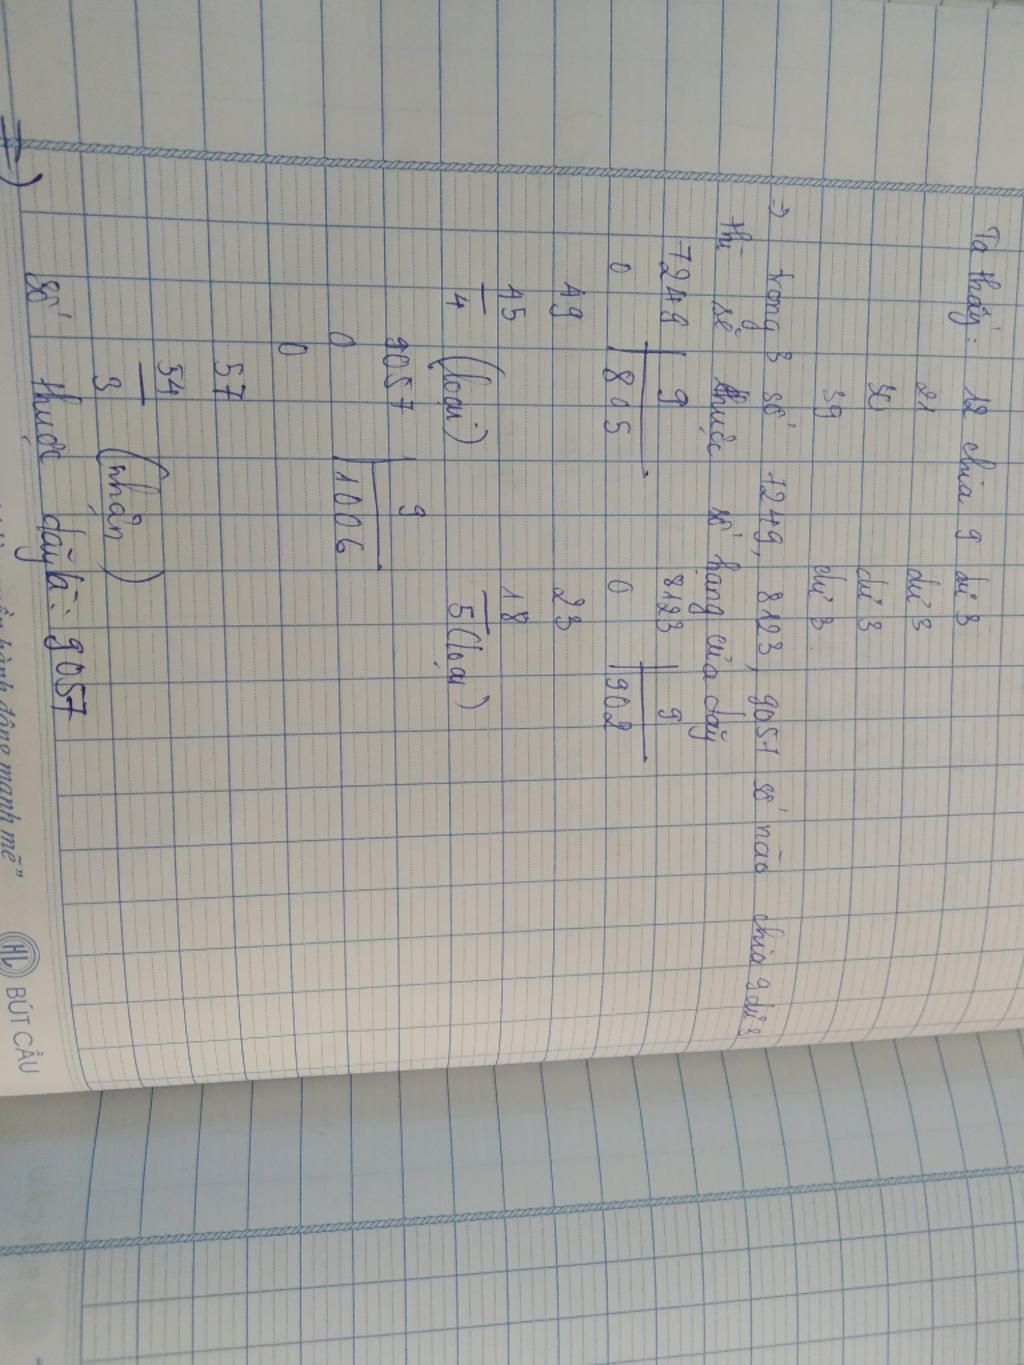 Ta thấy: 12 chia 9 dư 3
21 dư 3
30 dư 3
39 dư 3
=> trong 3 số 7249, 8123, 9057 số nào chia 9 dư 3
thì sẽ thuộc số hạng của dãy
7249 9 8123 9
0 805 0 902
49 23
45 18
4 (loại) 5 (loại)
9057 9
0 1006
0
57
54
3 (nhận)
=) Số thuộc dãy là: 9057
hành động mạnh mẽ"
HL BÚT CẦU